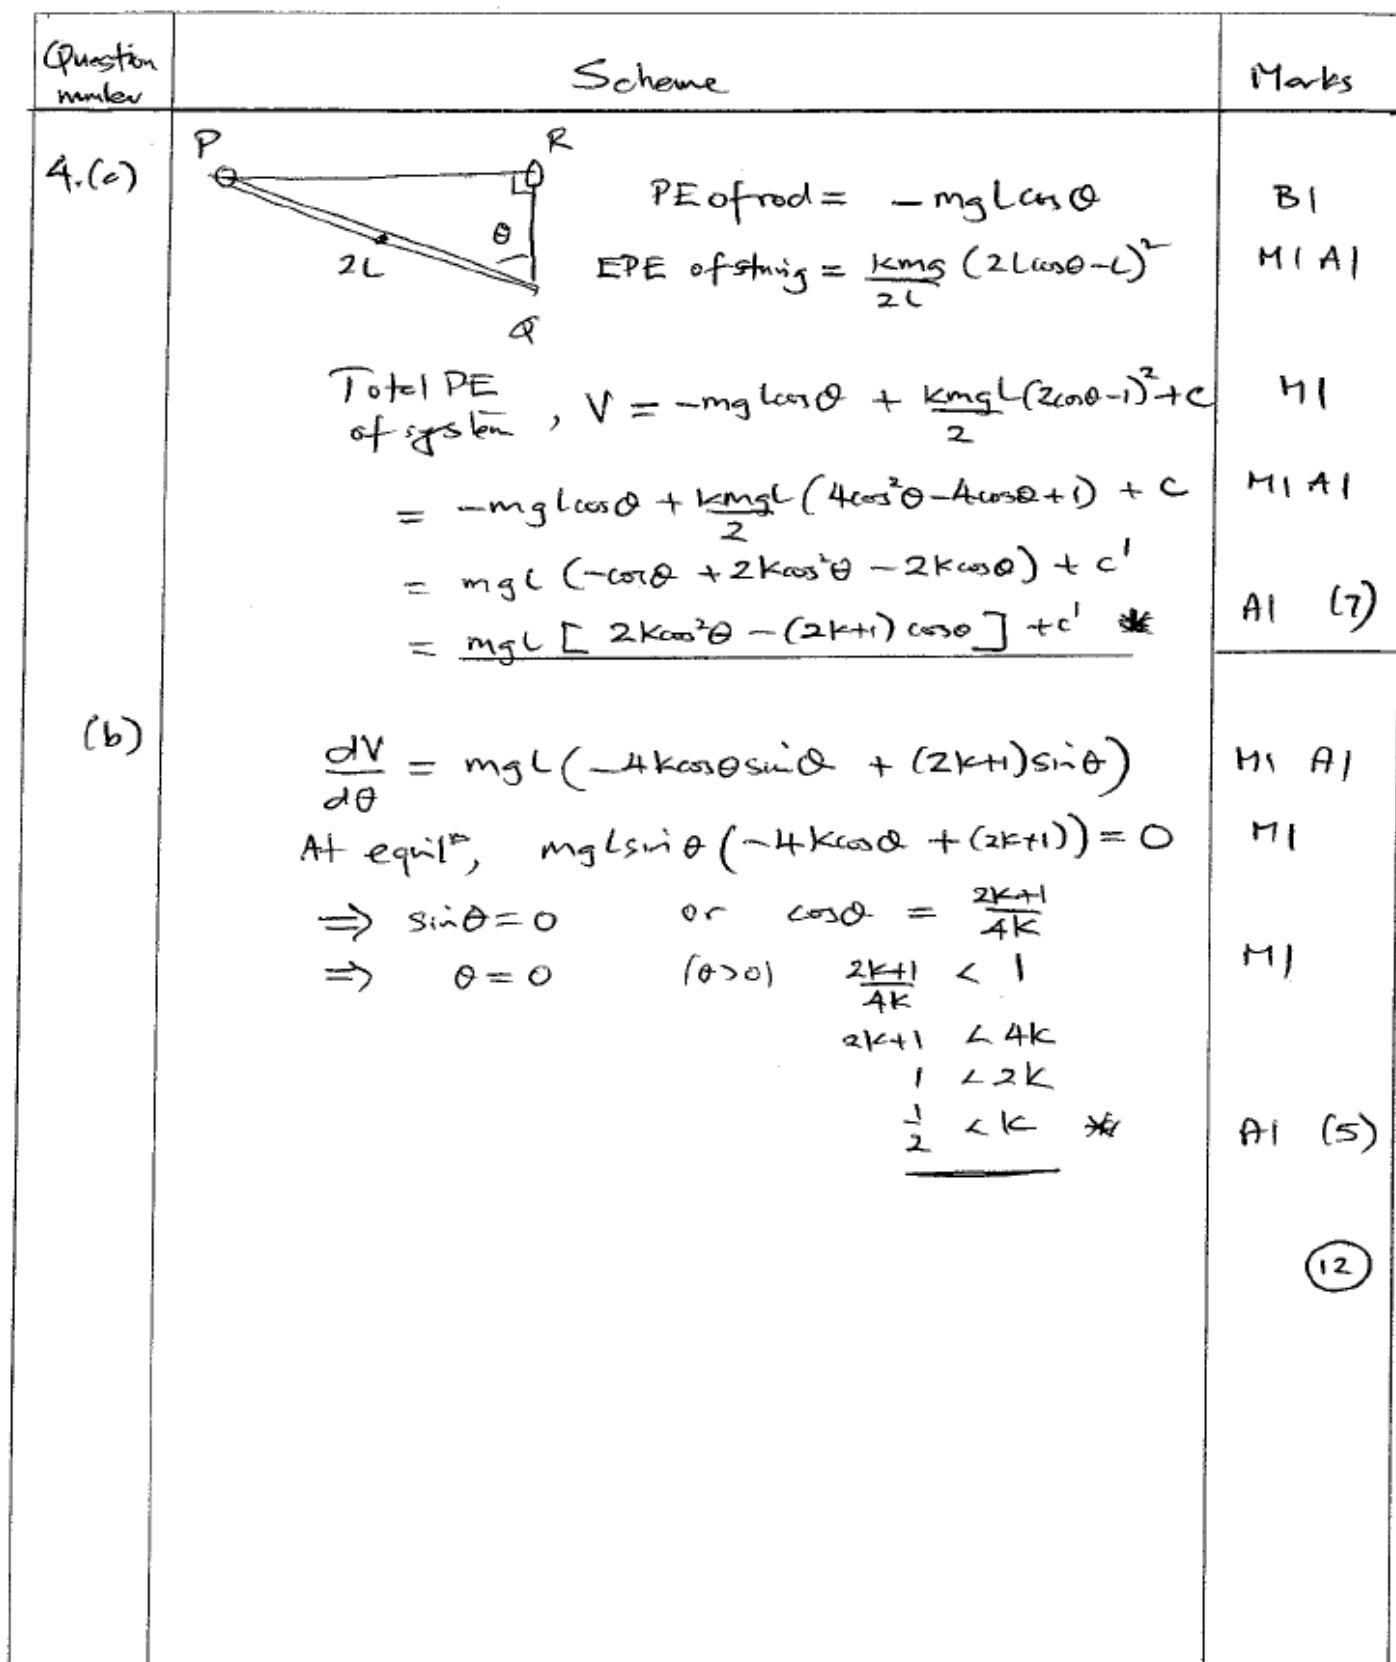 Question number Scheme Marks
4.(a) P R
θ
2L
Q
PE of rod = - mgL cos θ B1
EPE of string = kmg/2L (2L cosθ - L)² M1 A1
Total PE of system, V = -mgL cosθ + kmgL/2 (2cosθ-1)² + c M1
= -mgL cosθ + kmgL/2 (4cos²θ - 4cosθ + 1) + c M1 A1
= mgL (-cosθ + 2kcos²θ - 2kcosθ) + c'
= mgL [ 2kcos²θ - (2k+1) cosθ ] + c' * A1 (7)
(b) dV/dθ = mgL(-4kcosθsinθ + (2k+1)sinθ) M1 A1
At equilᵐ, mgLsinθ(-4kcosθ + (2k+1)) = 0 M1
⇒ sinθ = 0 or cosθ = 2k+1/4k
⇒ θ = 0 (θ>0) 2k+1/4k < 1 M1
2k+1 < 4k
1 < 2k
1/2 < k * A1 (5)
12